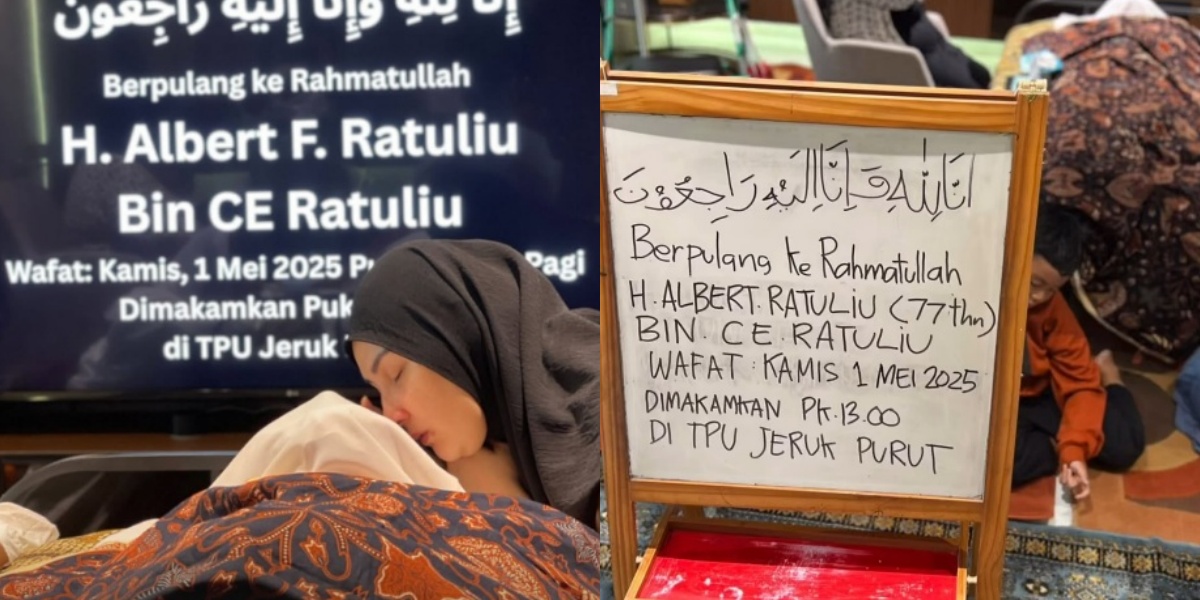 إنا لله وإنا إليه راجعون
Berpulang ke Rahmatullah
H. Albert F. Ratuliu
Bin CE Ratuliu
Wafat: Kamis, 1 Mei 2025 Pagi
Dimakamkan
di TPU Jeruk
اِنَّا لِلّٰهِ وَاِنَّا اِلَيْهِ رَاجِعُوْنَ
Berpulang ke Rahmatullah
H. ALBERT. RATULIU (77 thn)
BIN. CE. RATULIU
WAFAT : KAMIS 1 MEI 2025
DIMAKAMKAN PK.13.00
DI TPU JERUK PURUT